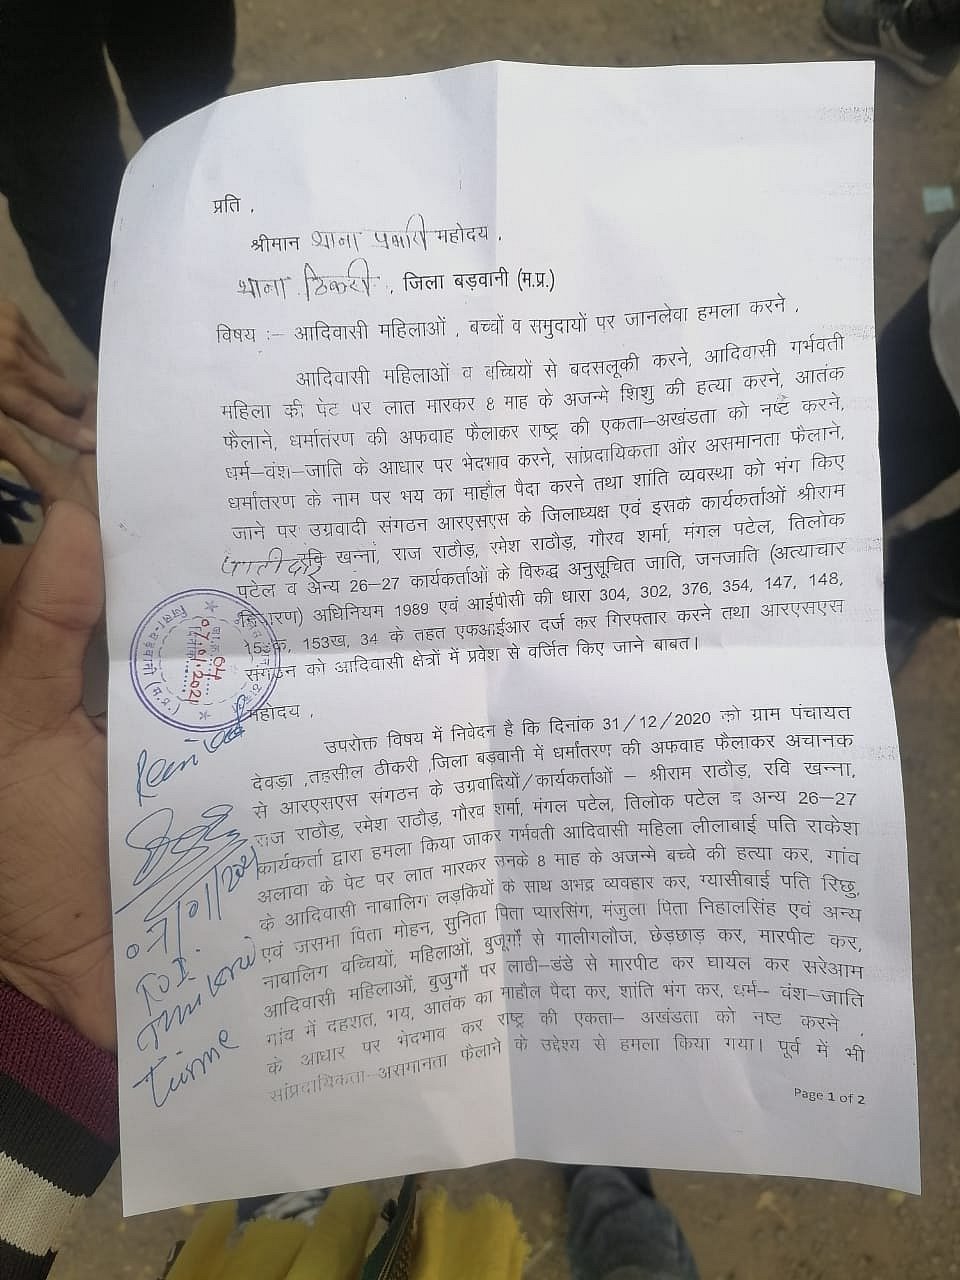 प्रति ,
श्रीमान थाना प्रभारी महोदय ,
थाना ठिकरी , जिला बड़वानी (म.प्र.)
विषय :– आदिवासी महिलाओं , बच्चों व समुदायों पर जानलेवा हमला करने ,
आदिवासी महिलाओं व बच्चियों से बदसलूकी करने, आदिवासी गर्भवती
महिला की पेट पर लात मारकर 8 माह के अजन्मे शिशु की हत्या करने, आतंक
फैलाने, धर्मातंरण की अफवाह फैलाकर राष्ट्र की एकता–अखंडता को नष्ट करने,
धर्म–वंश–जाति के आधार पर भेदभाव करने, सांप्रदायिकता और असमानता फैलाने,
धर्मांतरण के नाम पर भय का माहौल पैदा करने तथा शांति व्यवस्था को भंग किए
जाने पर उग्रवादी संगठन आरएसएस के जिलाध्यक्ष एवं इसके कार्यकर्ताओं श्रीराम
रवि खन्ना, राज राठौड़, रमेश राठौड़, गौरव शर्मा, मंगल पटेल, तिलोक
पटेल व अन्य 26–27 कार्यकर्ताओं के विरुद्ध अनुसूचित जाति, जनजाति (अत्याचार
निवारण) अधिनियम 1989 एवं आईपीसी की धारा 304, 302, 376, 354, 147, 148,
153क, 153ख, 34 के तहत एफआईआर दर्ज कर गिरफ्तार करने तथा आरएसएस
संगठन को आदिवासी क्षेत्रों में प्रवेश से वर्जित किए जाने बाबत।
महोदय ,
उपरोक्त विषय में निवेदन है कि दिनांक 31/12/2020 को ग्राम पंचायत
देवड़ा ,तहसील ठीकरी ,जिला बड़वानी में धर्मांतरण की अफवाह फैलाकर अचानक
से आरएसएस संगठन के उग्रवादियों/कार्यकर्ताओं – श्रीराम राठौड़, रवि खन्ना,
राज राठौड़, रमेश राठौड़, गौरव शर्मा, मंगल पटेल, तिलोक पटेल व अन्य 26–27
कार्यकर्ता द्वारा हमला किया जाकर गर्भवती आदिवासी महिला लीलाबाई पति राकेश
अलावा के पेट पर लात मारकर उनके 8 माह के अजन्मे बच्चे की हत्या कर, गांव
के आदिवासी नाबालिग लड़कियों के साथ अभद्र व्यवहार कर, ग्यासीबाई पति रिछु,
एवं जसभा पिता मोहन, सुनिता पिता प्यारसिंग, मंजुला पिता निहालसिंह एवं अन्य
नाबालिग बच्चियों, महिलाओं, बुजूर्गो से गालीगलौज, छेड़छाड़ कर, मारपीट कर,
आदिवासी महिलाओं, बुजुर्गो पर लाठी–डंडे से मारपीट कर घायल कर सरेआम
गांव में दहशत, भय, आतंक का माहौल पैदा कर, शांति भंग कर, धर्म– वंश–जाति
के आधार पर भेदभाव कर राष्ट्र की एकता– अखंडता को नष्ट करने ,
सांप्रदायिकता–असमानता फैलाने के उद्देश्य से हमला किया गया। पूर्व में भी
Page 1 of 2